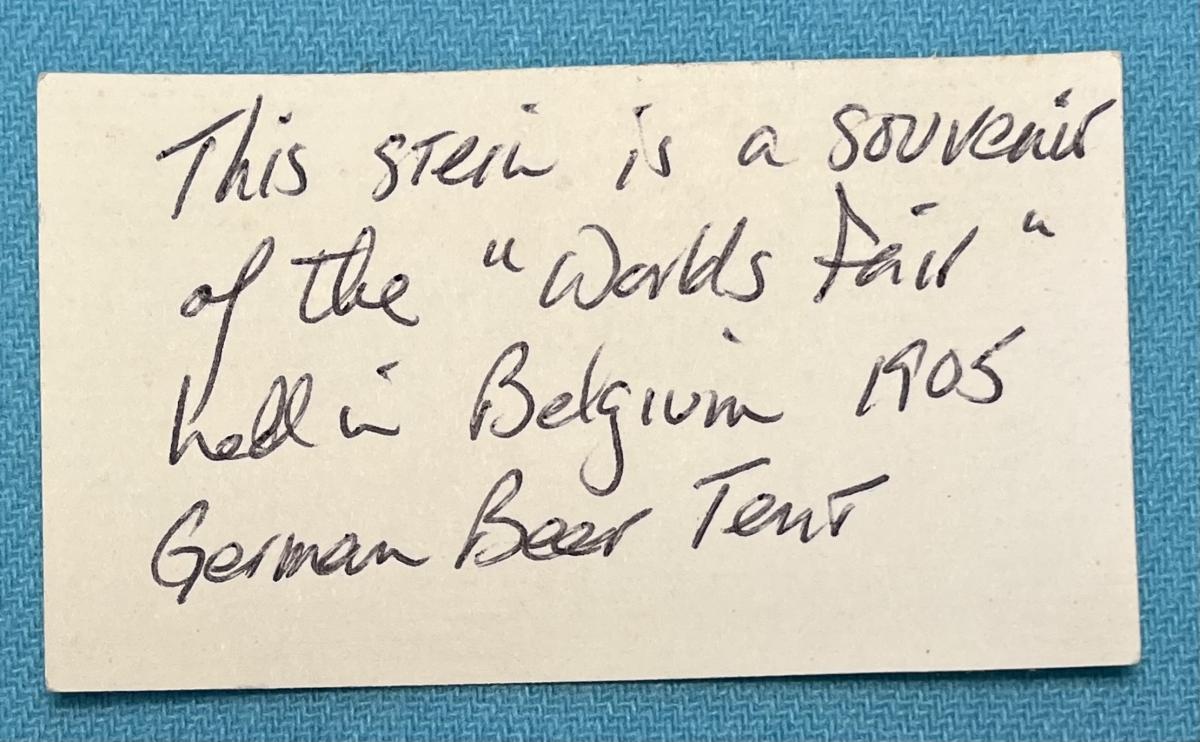 This stein is a souvenir
of the "Worlds Fair"
held in Belgium 1905
German Beer Tent